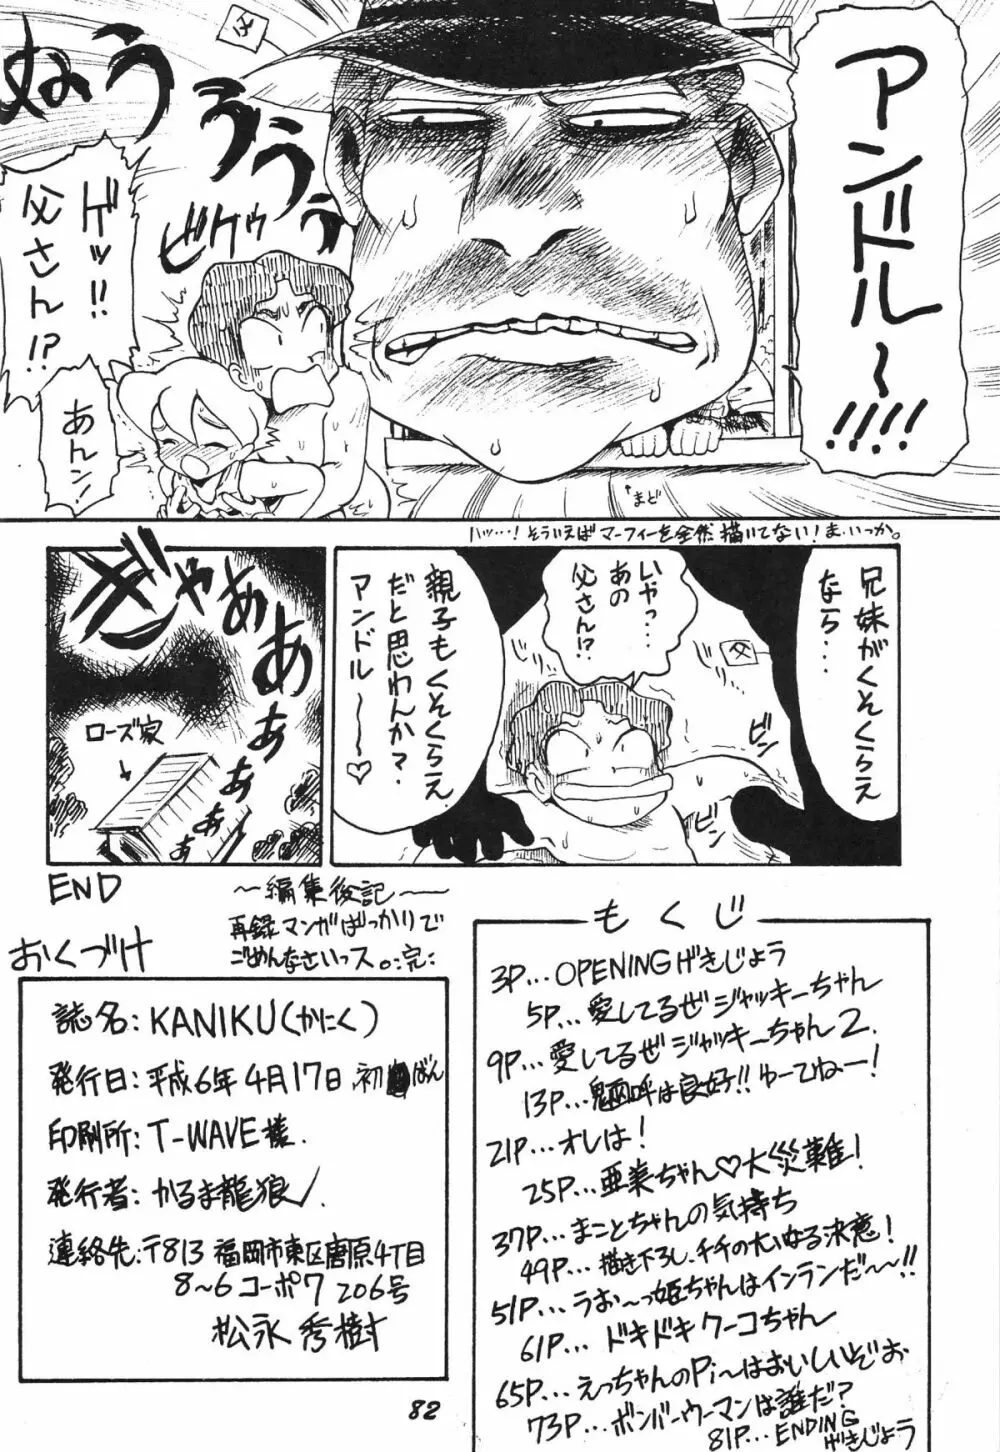 アンドル〜!!!!
父
ぬぅうぅうぅうぅ
ビクゥッ
ゲッ!!
父さん!?
あんッ!
まど
ハッ…!そういえばマーフィーを全然描いてない!ま、いっか。
兄妹がくそくらえ
なら…
父
いやっ…
あの
父さん!?
ビンビン
親子もくそくらえ
だと思わんか?
アンドル〜〜♡
ぎゃああああぁぁぁ
ローズ家
END
〜編集後記〜
再録マンガばっかりで
ごめんなさいっス。:完:
おくづけ
誌名:KANIKU(かにく)
発行日:平成6年4月17日.初ばん
印刷所:T-WAVE様.
発行者:かるま龍狼
もくじ
3P...OPENINGげきじょう
5P...愛してるぜジャッキーちゃん
9P...愛してるぜジャッキーちゃん2.
13P...は良好!!ゆーてねー!
21P...オレは!
25P...亜美ちゃん♡大災難!
37P...まことちゃんの気持ち
49P...描き下ろし、チチの大いなる決意!
51P...うお〜っ姫ちゃんはインランだ〜〜!!
61P...ドキドキクーコちゃん
65P...えっちゃんのPi〜はおいしいぞお
73P...ボンバーウーマンは誰だ?
81P...ENDING
げきじょう
82